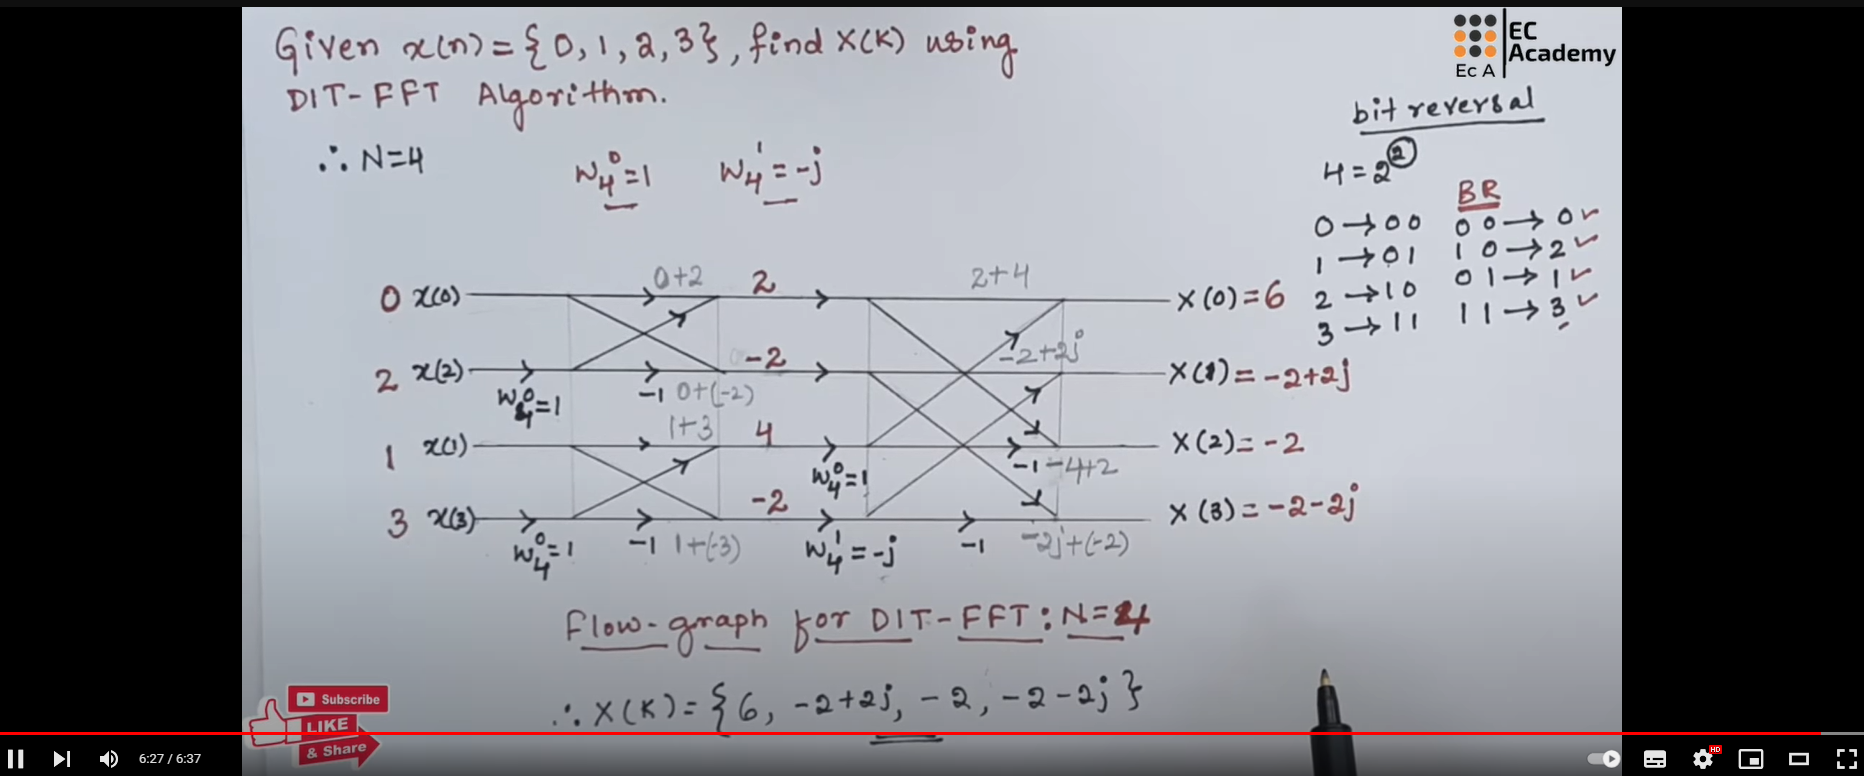 Given x(n) = {0, 1, 2, 3}, find X(K) using
DIT-FFT Algorithm.
EC
Academy
Ec A
bit reversal
∴ N=4
W₄⁰=1
W₄¹=-j
4=2²
BR
0→00 00→0✓
1→01 10→2✓
2→10 01→1✓
3→11 11→3✓
0 x(0) 0+2 2 2+4 X(0)=6
2 x(2) W₄⁰=1 -1 0+(-2) -2 -2+2j X(1)=-2+2j
1 x(1) 1+3 4 W₄⁰=1 -1 -4+2 X(2)=-2
3 x(3) W₄⁰=1 -1 1+(-3) -2 W₄¹=-j -1 -2j+(-2) X(3)=-2-2j
Flow-graph for DIT-FFT: N=4
∴ X(K)={6, -2+2j, -2, -2-2j}
Subscribe
LIKE
& Share
6:27 / 6:37
HD